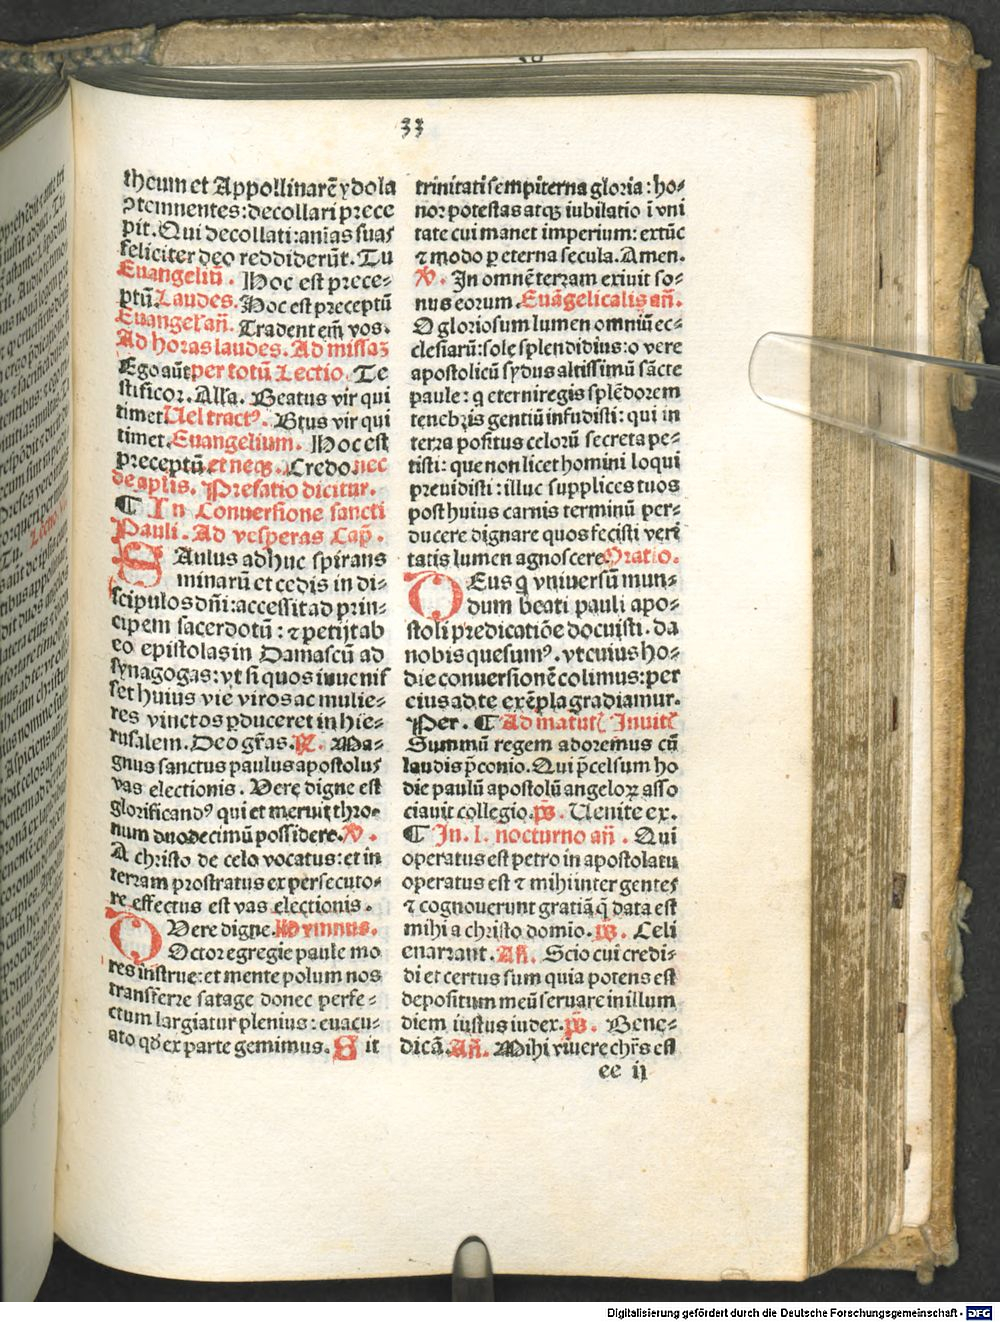 33
theum et Appollinarē ydola
ꝯtemnentes: decollari prece
pit. Qui decollati: anīas suas
feliciter deo reddiderūt. Tu
Euangeliū. Hoc est prece-
ptū. Laudes. Hoc est preceptū
Euangeł añ. Tradent eīm vos.
Ad horas laudes. Ad missaʒ
Ego aūt per totū Lectio. Te
stificor. Alla. Beatus vir qui
timet Uel tractꝰ. Btus vir qui
timet. Euangelium. Hoc est
preceptū. et neqꝫ. Credo. nec
de aplis. Prefatio dicitur.
¶ In Conuersione sancti
Pauli. Ad vesperas Cap̄.
SAulus adhuc spirans
minarū et cedis in di-
scipulos dn̄i: accessit ad prin-
cipem sacerdotū: ⁊ petijt ab
eo epistolas in Damascū ad
synagogas: vt si quos inuenis
set huius vie viros ac mulie-
res vinctos ꝑduceret in hie-
rusalem. Deo gr̄as. R̄. Ma-
gnus sanctus paulus apostolus
vas electionis. Vere digne est
glorificandꝰ qui et meruit thro-
num duodecimū possidere. V̄.
A christo de celo vocatus: et in
terram prostratus ex persecuto-
re effectus est vas electionis.
Vere digne. Hymnus.
DOctor egregie paule mo
res instrue: et mente polum nos
transferre satage donec perfe-
ctum largiatur plenius: euacu-
ato qd̄ ex parte gemimus. Sit
trinitati sempiterna gloria: ho-
nor potestas atqꝫ iubilatio ī vni
tate cui manet imperium: extūc
⁊ modo ꝑ eterna secula. Amen.
V̄. In omnē terram exiuit so-
nus eorum. Euāgelicalis añ.
O gloriosum lumen omniū ec-
clesiarū: sole splendidius: o vere
apostolicū sydus altissimū sācte
paule: q eterni regis splēdorem
tenebris gentiū infudisti: qui in
terra positus celorū secreta pe-
tisti: que non licet homini loqui
preuidisti: illuc supplices tuos
post huius carnis terminū per-
ducere dignare quos fecisti veri
tatis lumen agnoscere Oratio.
DEus q vniuersū mun-
dum beati pauli apo-
stoli predicatiōe docuisti. da
nobis quesumꝰ. vt cuius ho-
die conuersionē colimus: per
eius ad te exēpla gradiamur.
Per. ¶ Ad matut̄ Inuit̄
Summū regem adoremus cū
laudis p̄conio. Qui p̄celsum ho
die paulū apostolū angeloꝝ asso
ciauit collegio. p̄s. Uenite ex.
¶ In. I. nocturno añ. Qui
operatus est petro in apostolatu
operatus est ⁊ mihi inter gentes
⁊ cognouerunt gratiā q̄ data est
mihi a christo domio. p̄s. Celi
enarrant. Añ. Scio cui credi-
di et certus sum quia potens est
depositum meū seruare in illum
diem iustus iudex. p̄s. Bene-
dicā. Añ. Mihi viuere chr̄s est
ee ij
Digitalisierung gefördert durch die Deutsche Forschungsgemeinschaft - DFG